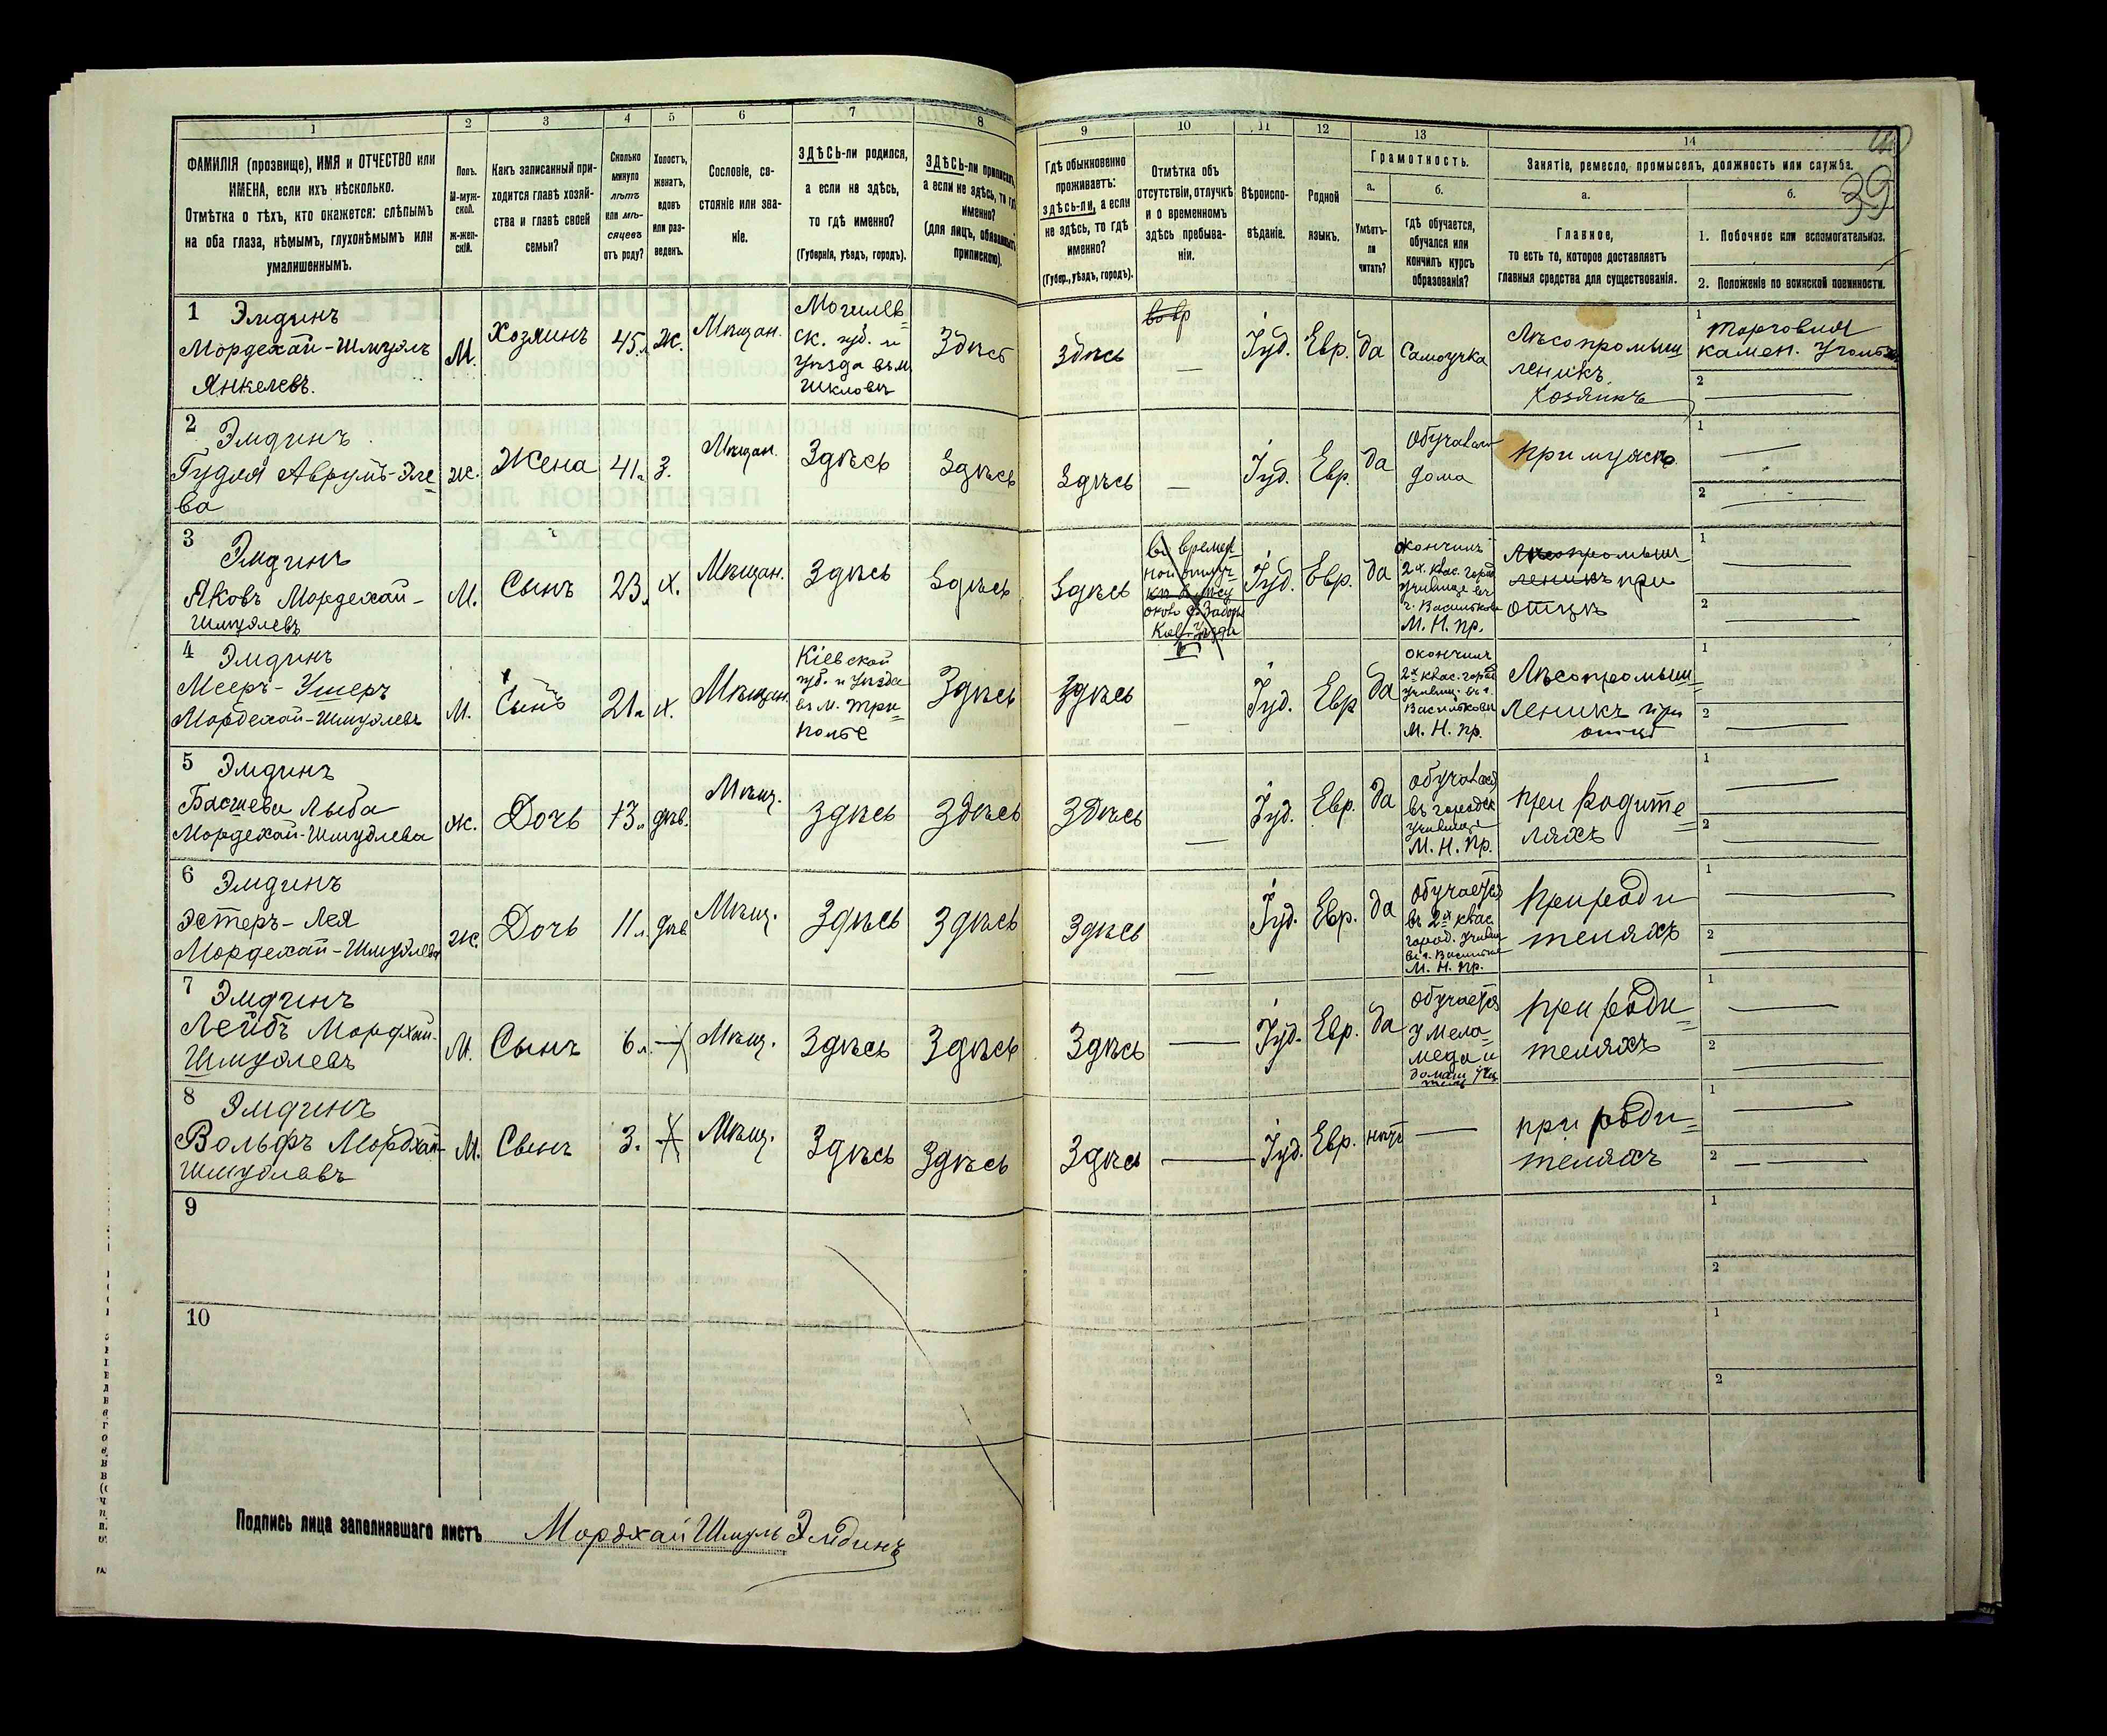 1 2 3 4 5 6 7 8 9 10 11 12 13 14
ФАМИЛІЯ (прозвище), ИМЯ и ОТЧЕСТВО или
ИМЕНА, если ихъ нѣсколько.
Отмѣтка о тѣхъ, кто окажется: слѣпымъ
на оба глаза, нѣмымъ, глухонѣмымъ или
умалишеннымъ.
Полъ.
М-муж-
ской.
Ж-жен-
скій.
Какъ записанный при-
ходится главѣ хозяй-
ства и главѣ своей
семьи?
Сколько
минуло
лѣтъ
или мѣ-
сяцевъ
отъ роду?
Холостъ,
женатъ,
вдовъ
или раз-
веденъ.
Сословіе, со-
стояніе или зва-
ніе.
ЗДѢСЬ-ли родился,
а если не здѣсь,
то гдѣ именно?
(Губернія, уѣздъ, городъ).
ЗДѢСЬ-ли приписанъ,
а если не здѣсь, то гдѣ
именно?
(для лицъ, обязанныхъ
припискою).
Гдѣ обыкновенно
проживаетъ:
здѣсь-ли, а если
не здѣсь, то гдѣ
именно?
(Губер., уѣздъ, городъ).
Отмѣтка объ
отсутствіи, отлучкѣ
и о временномъ
здѣсь пребыва-
ніи.
Вѣроиспо-
вѣданіе.
Родной
языкъ.
Грамотность.
а.
Умѣетъ-
ли
читать?
б.
Гдѣ обучается,
обучался или
кончилъ курсъ
образованія?
Занятіе, ремесло, промыселъ, должность или служба.
а.
Главное,
то есть то, которое доставляетъ
главныя средства для существованія.
б.
1. Побочное или вспомогательное.
2. Положеніе по воинской повинности.
39
1 Эмдинъ
Мордехай-Шмуэлъ
Янкелевъ.
М.
Хозяинъ
45 л
Ж.
Мѣщан.
Могилев=
ск. губ. и
уѣзда въ м
Шкловѣ
Здѣсь
Здѣсь
во вр
—
Іуд.
Евр.
да
Самоучка
Лѣсопромыш
леникъ
Хозяинъ
1
торговля
камен. уголь
2
2 Эмдинъ
Гудля Аврумъ-Эле=
ва
Ж.
Жена
41 л
З.
Мѣщан.
Здѣсь
Здѣсь
Здѣсь
—
Іуд.
Евр.
да
Обучалась
дома
при мужѣ
1
2
3 Эмдинъ
Яковъ Мордехай-
Шмуэлевъ
М.
Сынъ
23 л
х.
Мѣщан.
Здѣсь
Здѣсь
Здѣсь
во времен
ной отлуч-
кѣ въ лѣсу
около
Кіев. уѣзда
Іуд.
Евр.
да
окончилъ
2х клас. город
училище въ
г. Василькове
М. Н. пр.
Лѣсопромыш
леникъ при
отцѣ
1
2
4 Эмдинъ
Мееръ-Ушеръ
Мордехай-Шмуэлевъ
М.
Сынъ
21 л
х.
Мѣщан.
Кіевской
губ. и уѣзда
въ м. Три=
полье
Здѣсь
Здѣсь
—
Іуд.
Евр
да
окончилъ
2х клас. город
училищ. въ г.
Васильковѣ
М. Н. пр.
Лѣсопромыш
леникъ при
отцѣ
1
2
5 Эмдинъ
Басшева Лыба
Мордехай-Шмуэлева
ж.
Дочь
13 л
дѣв.
Мѣщ.
здѣсь
Здѣсь
Здѣсь
—
Іуд.
Евр.
да
обучалась
въ городск
училище
М. Н. пр.
при родите=
ляхъ
1
2
6 Эмдинъ
Эстеръ-Лея
Мордехай-Шмуэлева
ж.
Дочь
11 л.
дѣв
Мѣщ.
Здѣсь
Здѣсь
Здѣсь
—
Іуд.
Евр.
да
обучается
въ 2х клас
город. училищ
въ г. Васильков
М. Н. пр.
при роди
теляхъ
1
2
7 Эмдинъ
Лейбъ Мордхай-
Шмуэлевъ
М.
Сынъ
6 л.
—
Мѣщ.
Здѣсь
Здѣсь
Здѣсь
—
Іуд.
Евр.
да
обучается
у мела-
меда и
домаш учи
теля
при роди=
теляхъ
1
2
8 Эмдинъ
Вольфъ Мордхай-
Шмуэлевъ
М.
Сынъ
3.
Мѣщ.
Здѣсь
Здѣсь
Здѣсь
—
Іуд.
Евр.
нѣтъ
—
при роди=
теляхъ
1
2
9
1
2
10
1
2
Подпись лица заполнявшаго листъ Мордхай Шмуль Эмдинъ